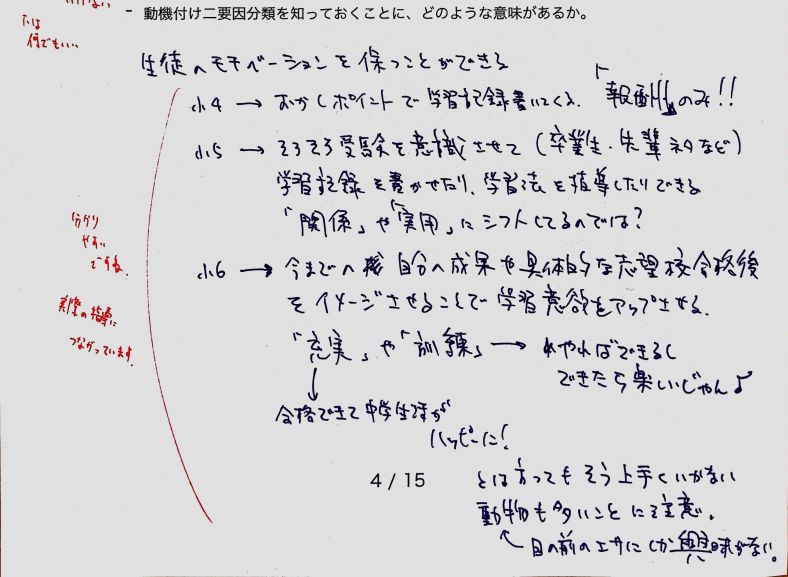 - 動機付け二要因分類を知っておくことに、どのような意味があるか。
何でもいい…
生徒のモチベーションを保つことができる
小4 → おかしポイントで学習記録書いてくる。「報酬」のみ!!
小5 → そろそろ受験を意識させて(卒業生・先輩ネタなど)
学習記録を書かせたり、学習法を指導したりできる
「関係」や「実用」にシフトしてるのでは?
分かり
やすい
ですね。
小6 → 今までの 自分の成果や具体的な志望校合格後
をイメージさせることで学習意欲をアップさせる。
実際の指導に
つながっています。
「充実」や「訓練」→ やればできるし
できたら楽しいじゃん♪
↓
合格できて中学生活が
ハッピーに!
4 / 15
とは言ってもそう上手くいかない
動物も多いことに注意。
↖目の前のエサにしか興味がない。